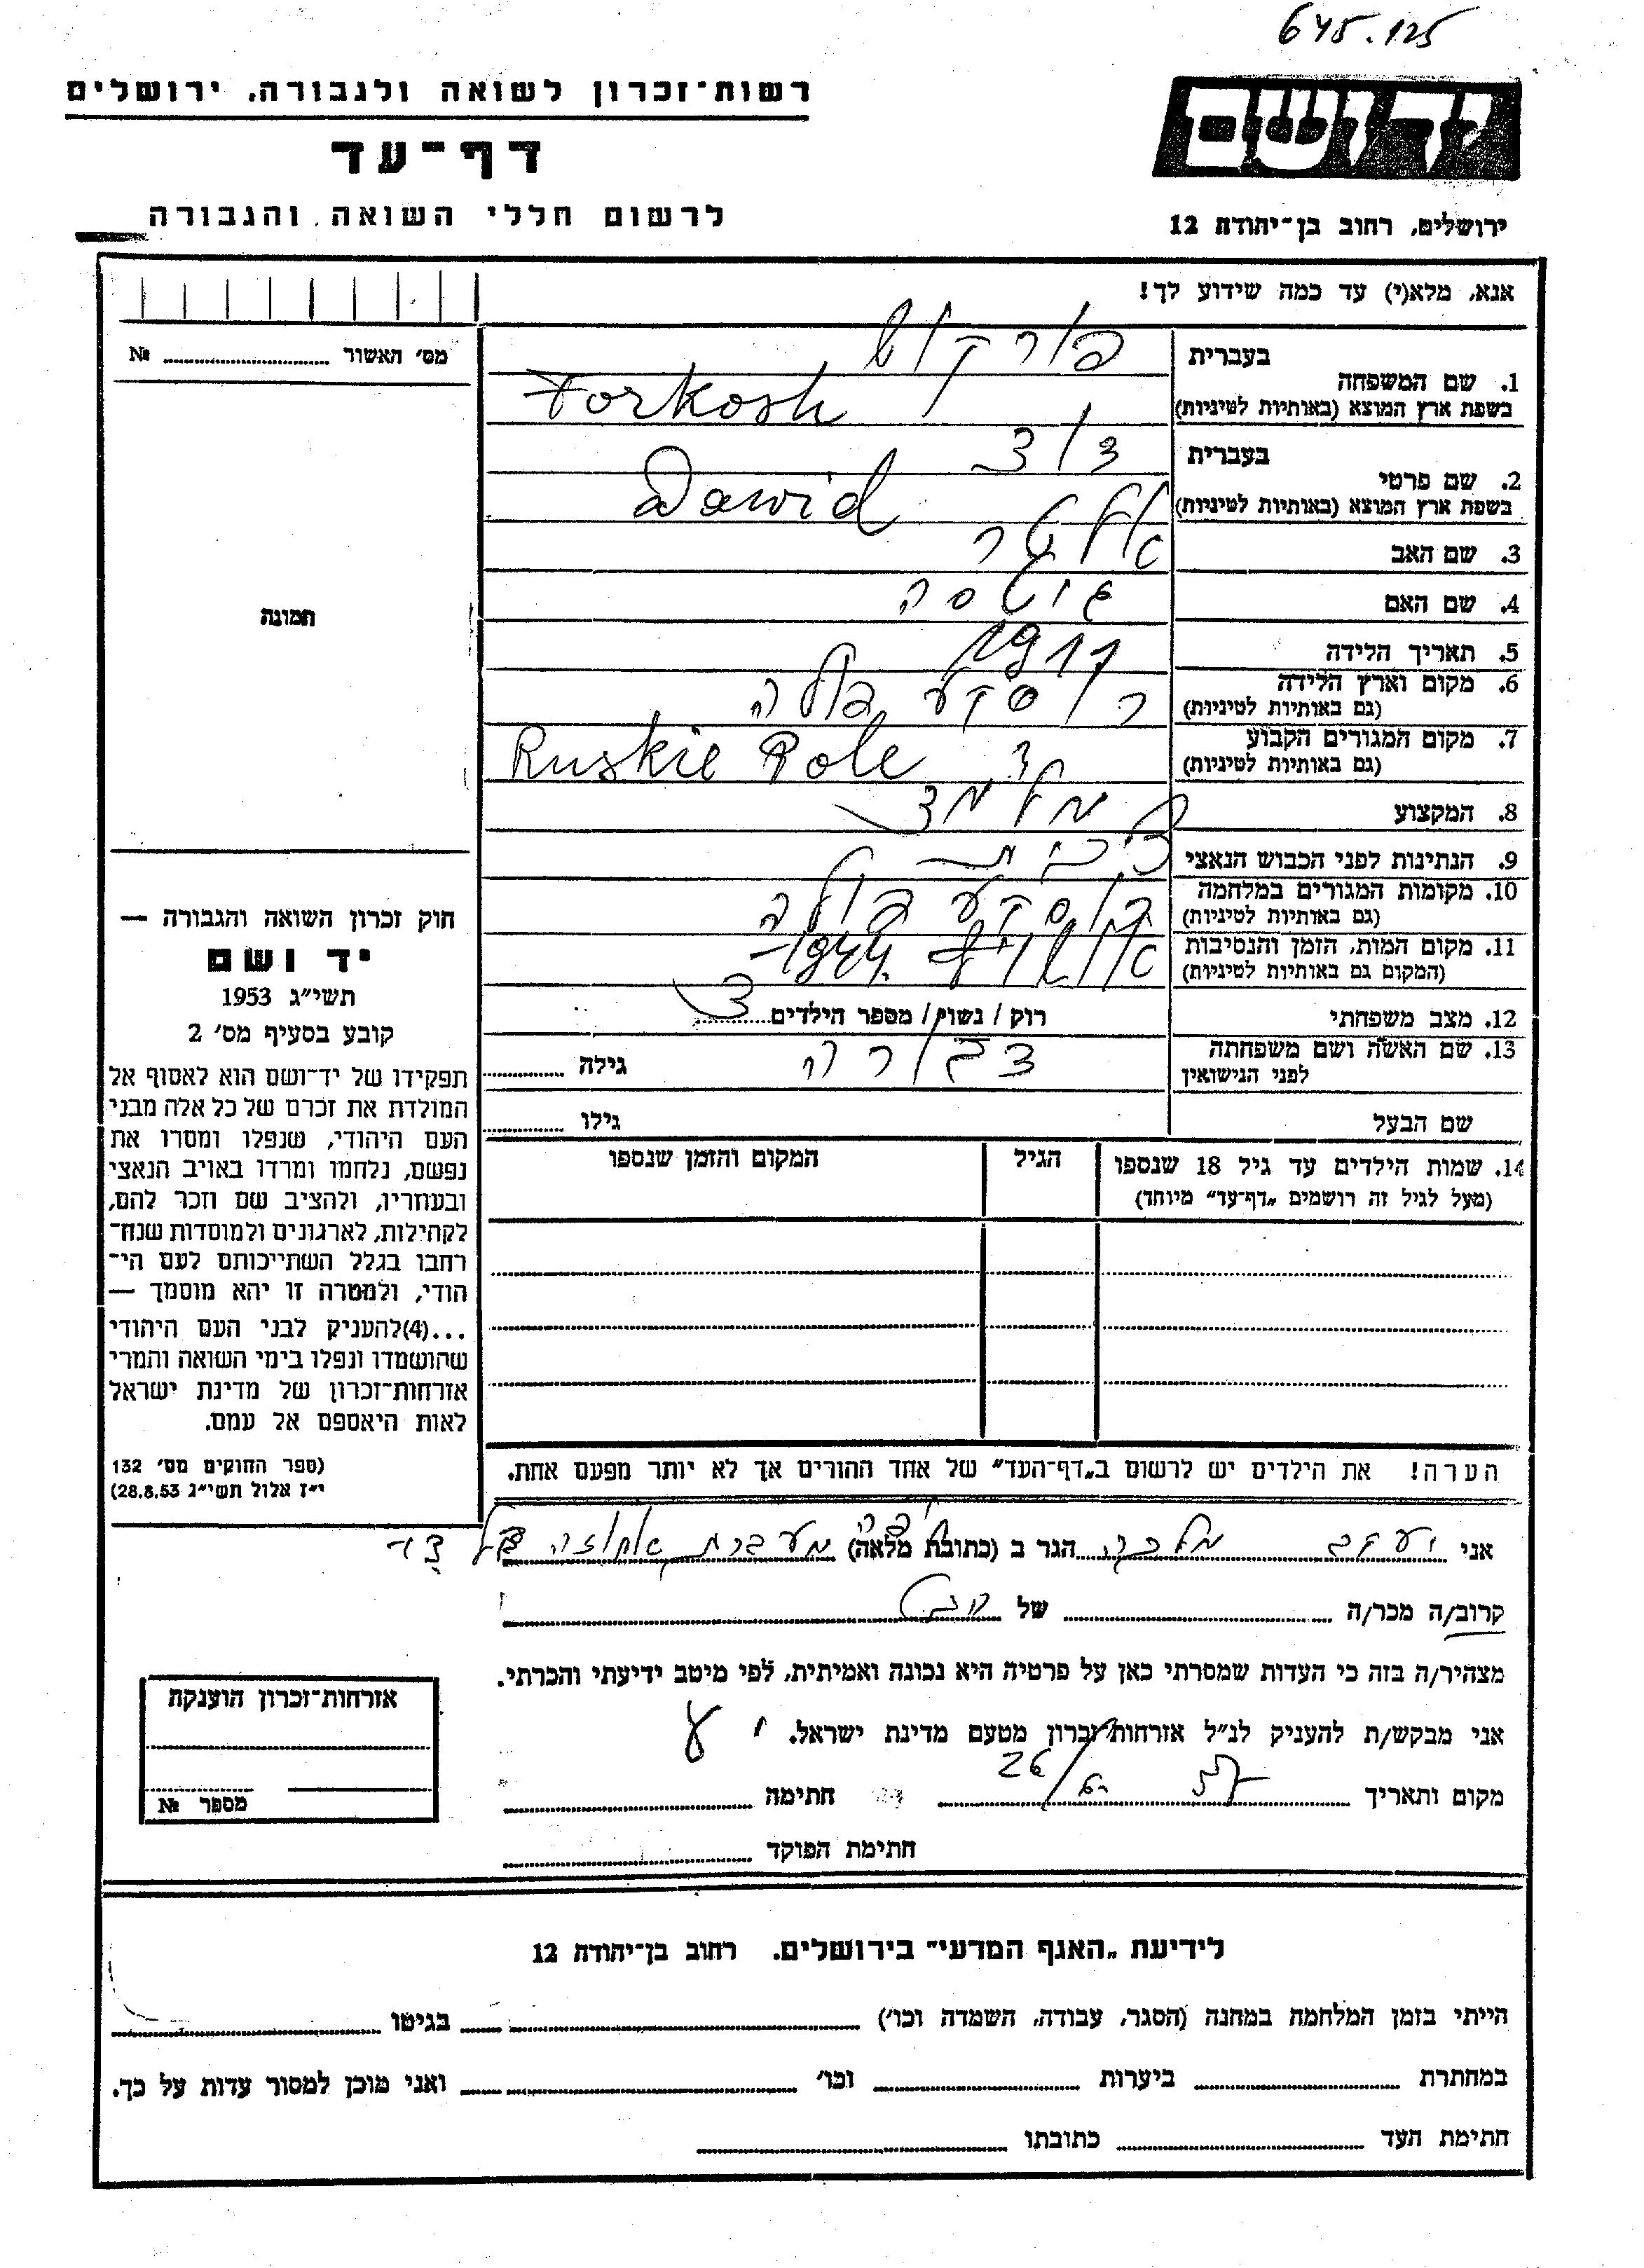 645.125
רשות־זכרון לשואה ולגבורה, ירושלים
דף־עד
לרשום חללי השואה והגבורה
יד ושם
ירושלים, רחוב בן־יהודה 12
אנא, מלא(י) עד כמה שידוע לך!
מס׳ האשור № ........
תמונה
1. שם המשפחה
בעברית פורקוש
בשפת ארץ המוצא (באותיות לטיניות) Forkosh
2. שם פרטי
בעברית דוד
בשפת ארץ המוצא (באותיות לטיניות) Dawid
3. שם האב אלטר
4. שם האם
5. תאריך הלידה 1911
6. מקום וארץ הלידה רוסקע פולה
(גם באותיות לטיניות)
7. מקום המגורים הקבוע
(גם באותיות לטיניות) Ruskie Pole
8. המקצוע מלמד
9. הנתינות לפני הכבוש הנאצי
10. מקומות המגורים במלחמה רוסקע פולה
(גם באותיות לטיניות)
11. מקום המות, הזמן והנסיבות אושויץ 1944
(המקום גם באותיות לטיניות)
12. מצב משפחתי רוק / נשוי / מספר הילדים
13. שם האשה ושם משפחתה דבורה גילה
לפני הנישואין
שם הבעל גילו
14. שמות הילדים עד גיל 18 שנספו הגיל המקום והזמן שנספו
(מעל לגיל זה רושמים „דף־עד״ מיוחד)
הערה! את הילדים יש לרשום ב„דף־העד״ של אחד ההורים אך לא יותר מפעם אחת.
חוק זכרון השואה והגבורה —
יד ושם
תשי״ג 1953
קובע בסעיף מס׳ 2
תפקידו של יד־ושם הוא לאסוף אל
המולדת את זכרם של כל אלה מבני
העם היהודי, שנפלו ומסרו את
נפשם, נלחמו ומרדו באויב הנאצי
ובעוזריו, ולהציב שם וזכר להם,
לקהילות, לארגונים ולמוסדות שנח־
רבו בגלל השתייכותם לעם הי־
הודי, ולמטרה זו יהא מוסמך —
...(4)להעניק לבני העם היהודי
שהושמדו ונפלו בימי השואה והמרי
אזרחות־זכרון של מדינת ישראל
לאות היאספם אל עמם.
(ספר החוקים מס׳ 132
י״ז אלול תשי״ג 28.8.53)
אני יעקב מלכה הגר ב (כתובת מלאה) מעברת
קרוב/ה מכר/ה של
מצהיר/ה בזה כי העדות שמסרתי כאן על פרטיה היא נכונה ואמיתית, לפי מיטב ידיעתי והכרתי.
אני מבקש/ת להעניק לנ״ל אזרחות־זכרון מטעם מדינת ישראל.
מקום ותאריך חתימה
חתימת הפוקד
אזרחות־זכרון הוענקה
מספר №
לידיעת „האגף המדעי״ בירושלים. רחוב בן־יהודה 12
הייתי בזמן המלחמה במחנה (הסגר, עבודה, השמדה וכו׳) בגיטו
במחתרת ביערות וכו׳ ואני מוכן למסור עדות על כך.
חתימת העד כתובתו